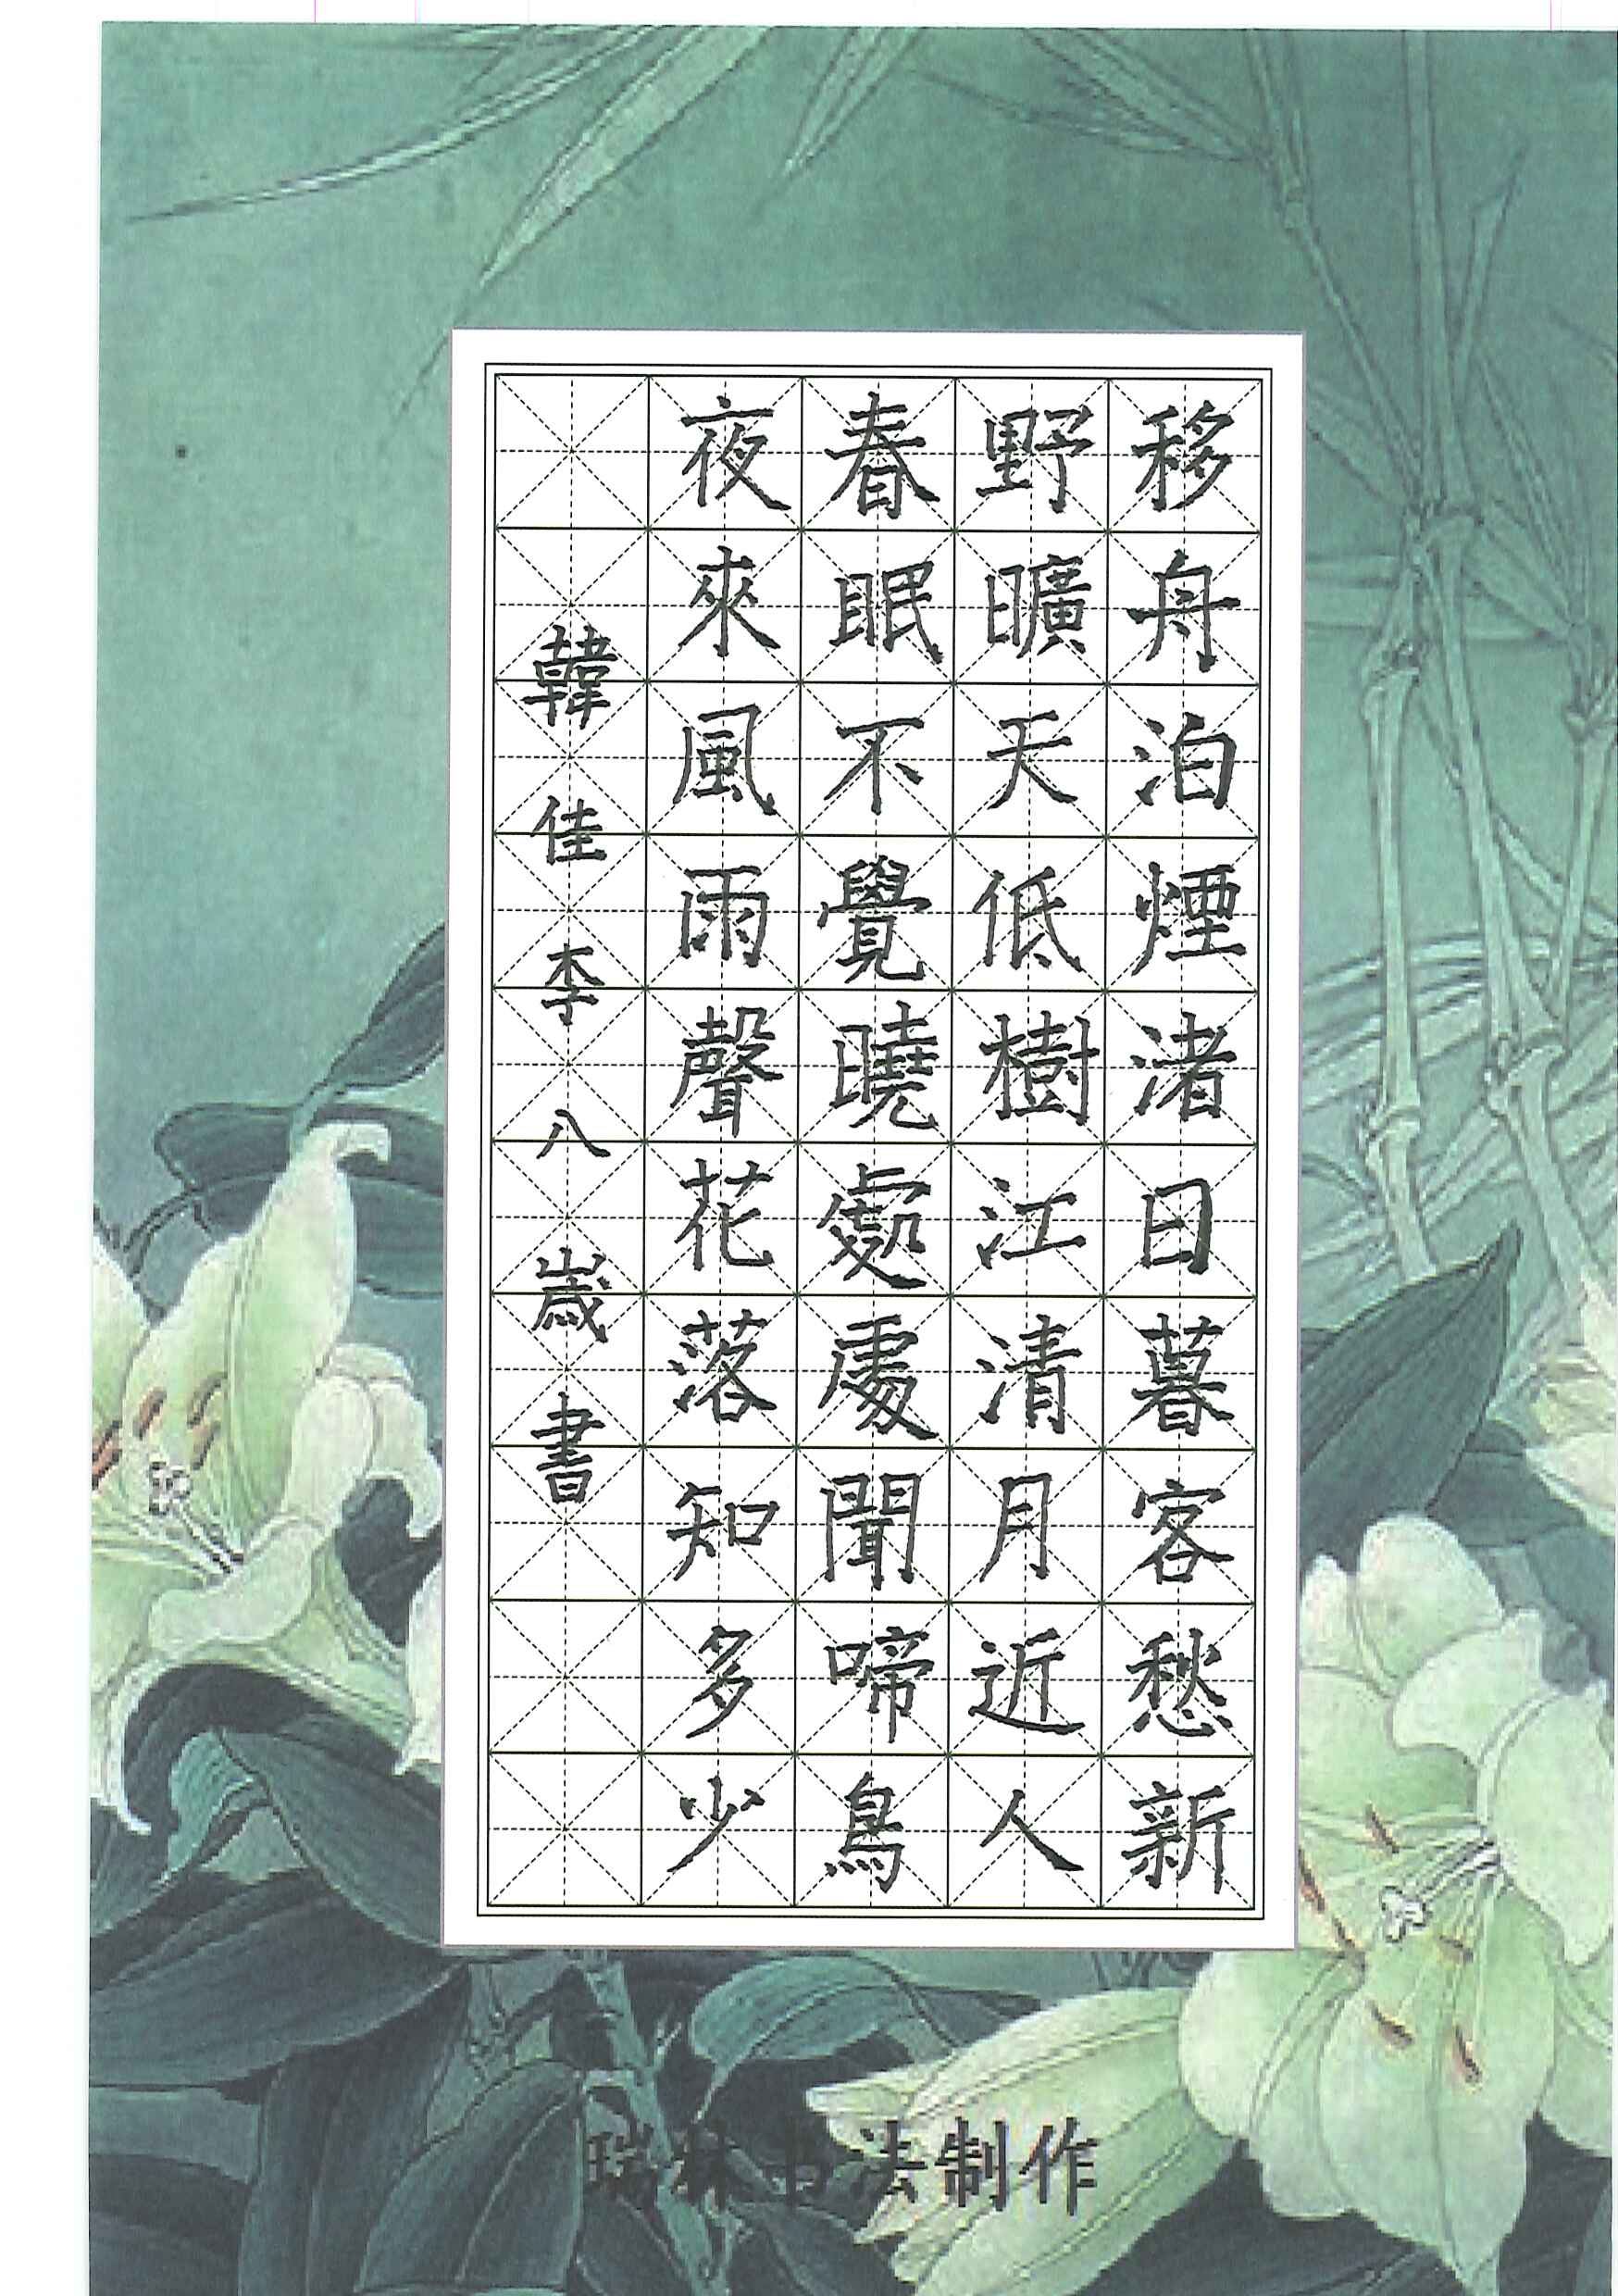 移舟泊煙渚日暮客愁新
野曠天低樹江清月近人
春眠不覺曉處處聞啼鳥
夜來風雨聲花落知多少
韓佳李八歲書
瑞林书法制作